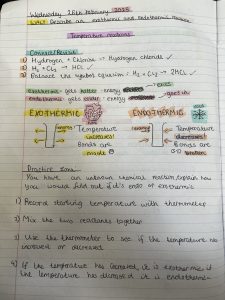 Wednesday 26th February 2025
WALT: Describe an exothermic and endothermic reaction
Temperature reactions
Connect/Revisit
1) Hydrogen + Chlorine → Hydrogen chloride ✓
2) H₂ + Cl₂ → HCL ✓
3) Balance the symbol equation: H₂ + Cl₂ → 2HCL ✓
exothermic - gets hotter - energy exits
endothermic gets colder - energy goes in
EXOTHERMIC
ENDOTHERMIC
energy
Temperature
increases!
Bonds are
made
energy
Temperature
decreases!
Bonds are
broken
Practice Zone
You have an unknown chemical reaction, explain how
you would find out if it's endo or exothermic
1) Record starting temperature with thermometer
2) Mix the two reactants together
3) Use the thermometer to see if the temperature has
increased or decreased
4) If the temperature has increased, it is exothermic if
the temperature has decreased it is endothermic